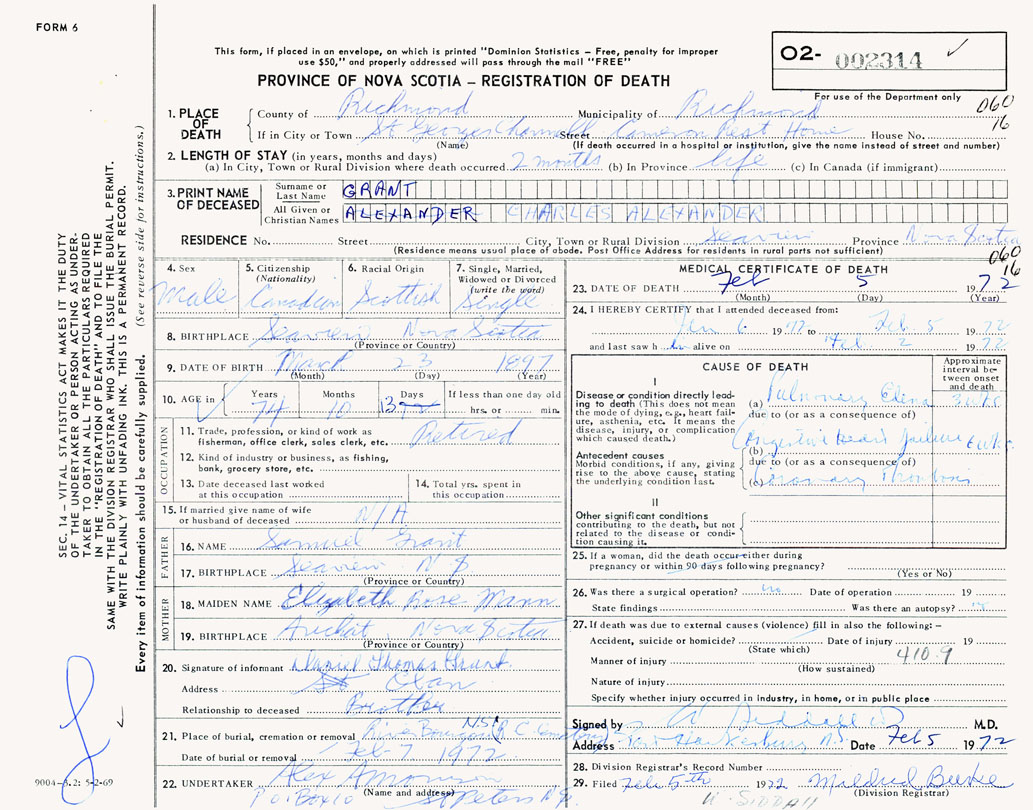 FORM 6
This form, if placed in an envelope, on which is printed "Dominion Statistics – Free, penalty for improper
use $50," and properly addressed will pass through the mail "FREE"
PROVINCE OF NOVA SCOTIA – REGISTRATION OF DEATH
02- 002314
For use of the Department only
060
16
1. PLACE OF DEATH
County of Richmond Municipality of Richmond
If in City or Town St Georges Channell Street Cameron Rest Home House No.
(Name) (If death occurred in a hospital or institution, give the name instead of street and number)
2. LENGTH OF STAY (in years, months and days)
(a) In City, Town or Rural Division where death occurred 2 months (b) In Province life (c) In Canada (if immigrant)
3. PRINT NAME OF DECEASED
Surname or Last Name GRANT
All Given or Christian Names ALEXANDER CHARLES ALEXANDER
RESIDENCE No. Street City, Town or Rural Division Seaview Province Nova Scotia
(Residence means usual place of abode. Post Office Address for residents in rural parts not sufficient)
060
16
4. Sex Male
5. Citizenship (Nationality) Canadian
6. Racial Origin Scottish
7. Single, Married, Widowed or Divorced (write the word) Single
8. BIRTHPLACE Seaview Nova Scotia
(Province or Country)
9. DATE OF BIRTH March 23 1897
(Month) (Day) (Year)
10. AGE in Years 74 Months 10 Days 13 If less than one day old
hrs. or min.
OCCUPATION
11. Trade, profession, or kind of work as
fisherman, office clerk, sales clerk, etc. Retired
12. Kind of industry or business, as fishing,
bank, grocery store, etc.
13. Date deceased last worked
at this occupation
14. Total yrs. spent in
this occupation
15. If married give name of wife
or husband of deceased N/A
FATHER
16. NAME Samuel Grant
17. BIRTHPLACE Seaview N S
(Province or Country)
MOTHER
18. MAIDEN NAME Elizabeth Rose Mann
19. BIRTHPLACE Arichat, Nova Scotia
(Province or Country)
20. Signature of informant Daniel Thomas Grant
Address
Relationship to deceased Brother
21. Place of burial, cremation or removal River Bourgeois NS (R C Cemetery)
Date of burial or removal Feb-7 1972
22. UNDERTAKER Alex
(Name and address)
P.O. Box 10 St Peters N.S.
MEDICAL CERTIFICATE OF DEATH
23. DATE OF DEATH Feb 5 1972
(Month) (Day) (Year)
24. I HEREBY CERTIFY that I attended deceased from:
Jan 6 1972 to Feb 5 1972
and last saw h im alive on Feb 2 1972
CAUSE OF DEATH
Approximate interval between onset and death
I
Disease or condition directly leading to death (This does not mean the mode of dying, e.g., heart failure, asthenia, etc. It means the disease, injury, or complication which caused death.)
(a) Pulmonary Edema 3 wks
due to (or as a consequence of)
(b) Congestive Heart Failure 6 wks.
Antecedent causes
Morbid conditions, if any, giving rise to the above cause, stating the underlying condition last.
due to (or as a consequence of)
(c) Coronary Thrombosis
II
Other significant conditions contributing to the death, but not related to the disease or condition causing it.
25. If a woman, did the death occur either during
pregnancy or within 90 days following pregnancy?
(Yes or No)
26. Was there a surgical operation? no Date of operation 19
State findings Was there an autopsy?
27. If death was due to external causes (violence) fill in also the following: –
Accident, suicide or homicide? Date of injury 19
(State which)
410.9
Manner of injury
(How sustained)
Nature of injury
Specify whether injury occurred in industry, in home, or in public place
Signed by M.D.
Address Port Hawkesbury N.S. Date Feb 5 1972
28. Division Registrar's Record Number
29. Filed Feb 5th 1972 Mildred Burke
(Division Registrar)
W. SIDDALL
SEC. 14 – VITAL STATISTICS ACT MAKES IT THE DUTY
OF THE UNDERTAKER OR PERSON ACTING AS UNDER-
TAKER TO OBTAIN ALL THE PARTICULARS REQUIRED
IN THE "REGISTRATION OF DEATH" AND TO FILE THE
SAME WITH THE DIVISION REGISTRAR WHO SHALL ISSUE THE BURIAL PERMIT.
WRITE PLAINLY WITH UNFADING INK. THIS IS A PERMANENT RECORD.
Every item of information should be carefully supplied. (See reverse side for instructions.)